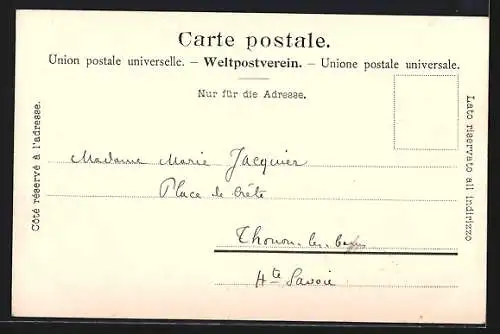 Carte postale.
Union postale universelle. – Weltpostverein. – Unione postale universale.
Nur für die Adresse.
Côté réservé à l'adresse.
Lato riservato all indirizzo
Madame Marie Jacquier
Place de Crête
Thonon-les-bains
Hte Savoie